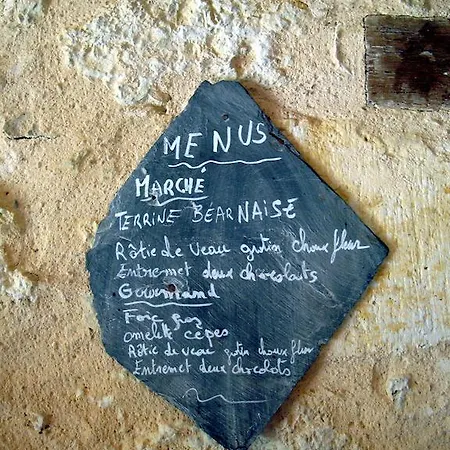 MENUS
MARCHÉ
TERRINE BÉARNAISE
Rôtie de veau gratin choux fleur
Entremet deux chocolats
Gourmand
Foie gras
omelette cèpes
Rôtie de veau gratin choux fleur
Entremet deux chocolats